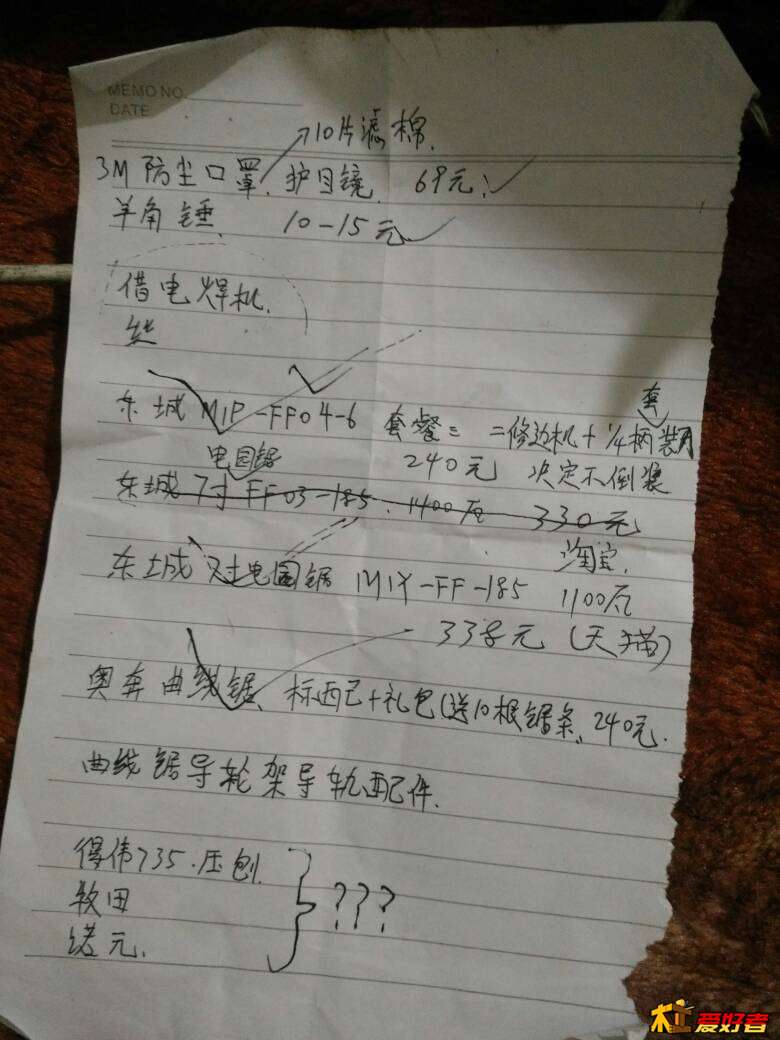 MEMO NO.
DATE
→10片滤棉.
3M 防尘口罩、护目镜. 69元. ✓
羊角锤、 10-15元 ✓
借电焊机.
东城 M1P-FF04-6 套餐二 二修边机+1/4柄套装
240元 决定不倒装
电园锯
东城 7寸 FF03-185. 1400瓦 330元
淘宝.
东城 电园锯 M1Y-FF-185 1100瓦
338元 (天猫)
奥奔曲线锯、标配+礼包(送10根锯条、240元.
曲线锯导轮架导轨配件.
得伟735.压刨.
牧田
诺元.
} ???
木工爱好者